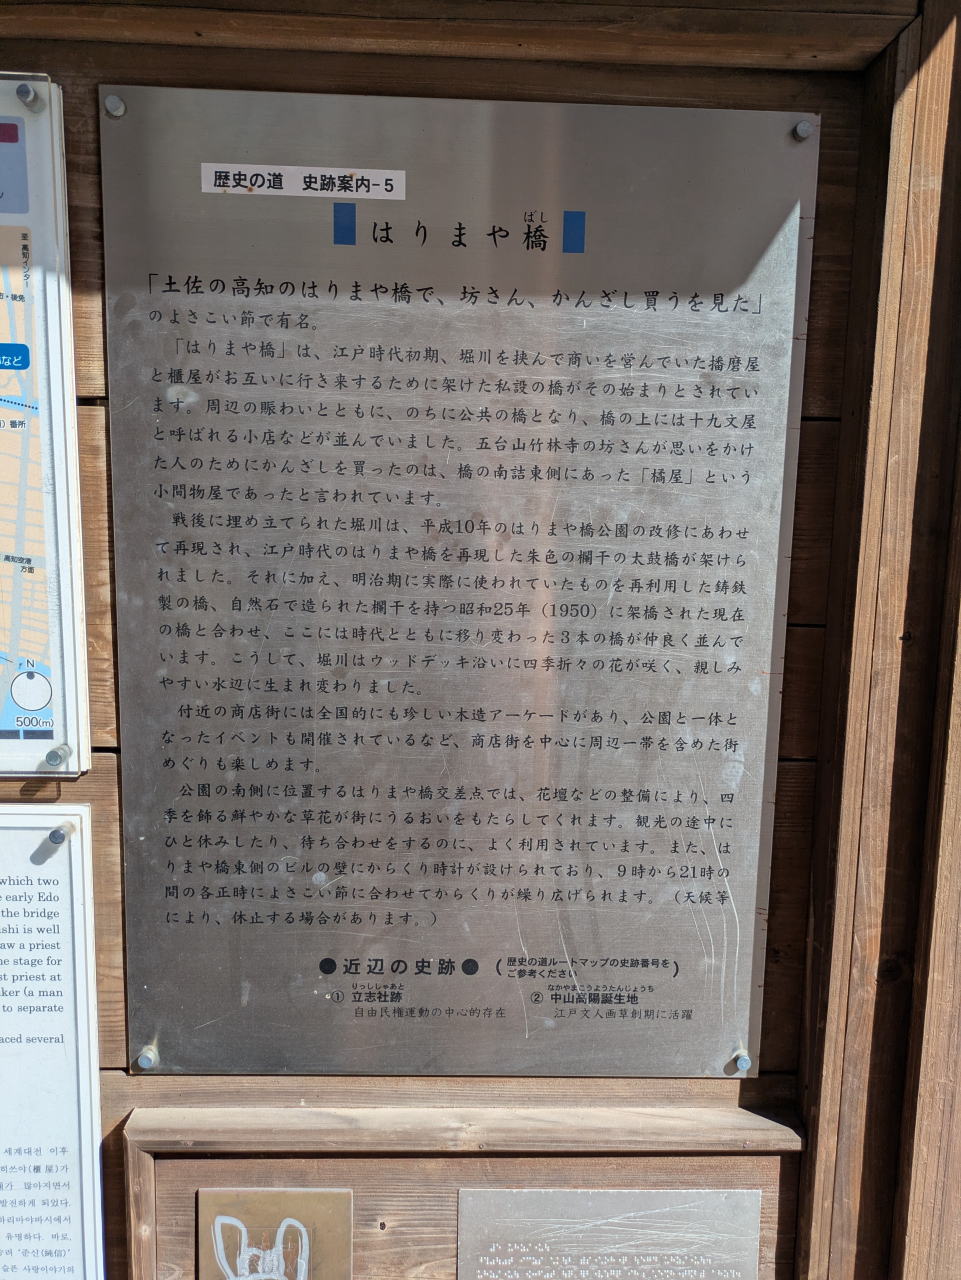 歴史の道 史跡案内-5
ばし
はりまや橋
「土佐の高知のはりまや橋で、坊さん、かんざし買うを見た」
のよさこい節で有名。
「はりまや橋」は、江戸時代初期、堀川を挟んで商いを営んでいた播磨屋
と櫃屋がお互いに行き来するために架けた私設の橋がその始まりとされてい
ます。周辺の賑わいとともに、のちに公共の橋となり、橋の上には十九文屋
と呼ばれる小店などが並んでいました。五台山竹林寺の坊さんが思いをかけ
た人のためにかんざしを買ったのは、橋の南詰東側にあった「橘屋」という
小間物屋であったと言われています。
戦後に埋め立てられた堀川は、平成10年のはりまや橋公園の改修にあわせ
て再現され、江戸時代のはりまや橋を再現した朱色の欄干の太鼓橋が架けら
れました。それに加え、明治期に実際に使われていたものを再利用した鋳鉄
製の橋、自然石で造られた欄干を持つ昭和25年（1950）に架橋された現在
の橋と合わせ、ここには時代とともに移り変わった3本の橋が仲良く並んで
います。こうして、堀川はウッドデッキ沿いに四季折々の花が咲く、親しみ
やすい水辺に生まれ変わりました。
付近の商店街には全国的にも珍しい木造アーケードがあり、公園と一体と
なったイベントも開催されているなど、商店街を中心に周辺一帯を含めた街
めぐりも楽しめます。
公園の南側に位置するはりまや橋交差点では、花壇などの整備により、四
季を飾る鮮やかな草花が街にうるおいをもたらしてくれます。観光の途中に
ひと休みしたり、待ち合わせをするのに、よく利用されています。また、は
りまや橋東側のビルの壁にからくり時計が設けられており、9時から21時の
間の各正時によさこい節に合わせてからくりが繰り広げられます。（天候等
により、休止する場合があります。）
●近辺の史跡●（歴史の道ルートマップの史跡番号を
ご参考ください）
りっししゃあと
① 立志社跡
自由民権運動の中心的存在
なかやまこうようたんじょうち
② 中山高陽誕生地
江戸文人画草創期に活躍
至 高知インター
市・後免
など
番所
高知空港
方面
N
500(m)
which two
e early Edo
the bridge
shi is well
aw a priest
he stage for
st priest at
ker (a man
to separate
aced several
세계대전 이후
히쓰야(櫃屋)가
많아지면서
발전하게 되었다.
하리마야바시에서
유명하다. 바로,
'준신(純信)'
슬픈 사랑이야기의